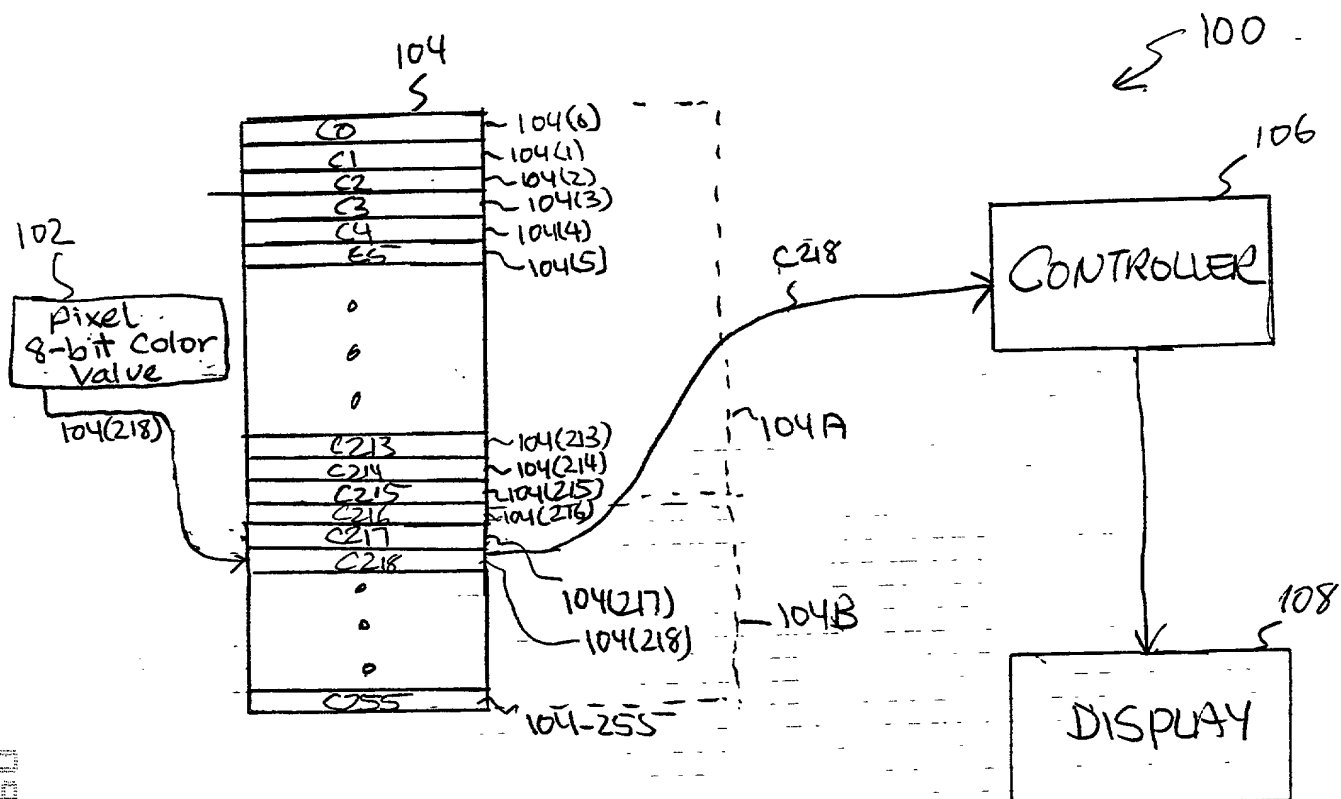 100
104
106
C0
104(0)
C1
104(1)
C2
104(2)
C3
104(3)
C4
104(4)
C5
104(5)
102
Pixel
8-bit Color
Value
104(218)
C218
CONTROLLER
C213
104(213)
C214
104(214)
C215
104(215)
C216
104(216)
C217
C218
104A
104(217)
104(218)
104B
108
C255
104-255
DISPLAY